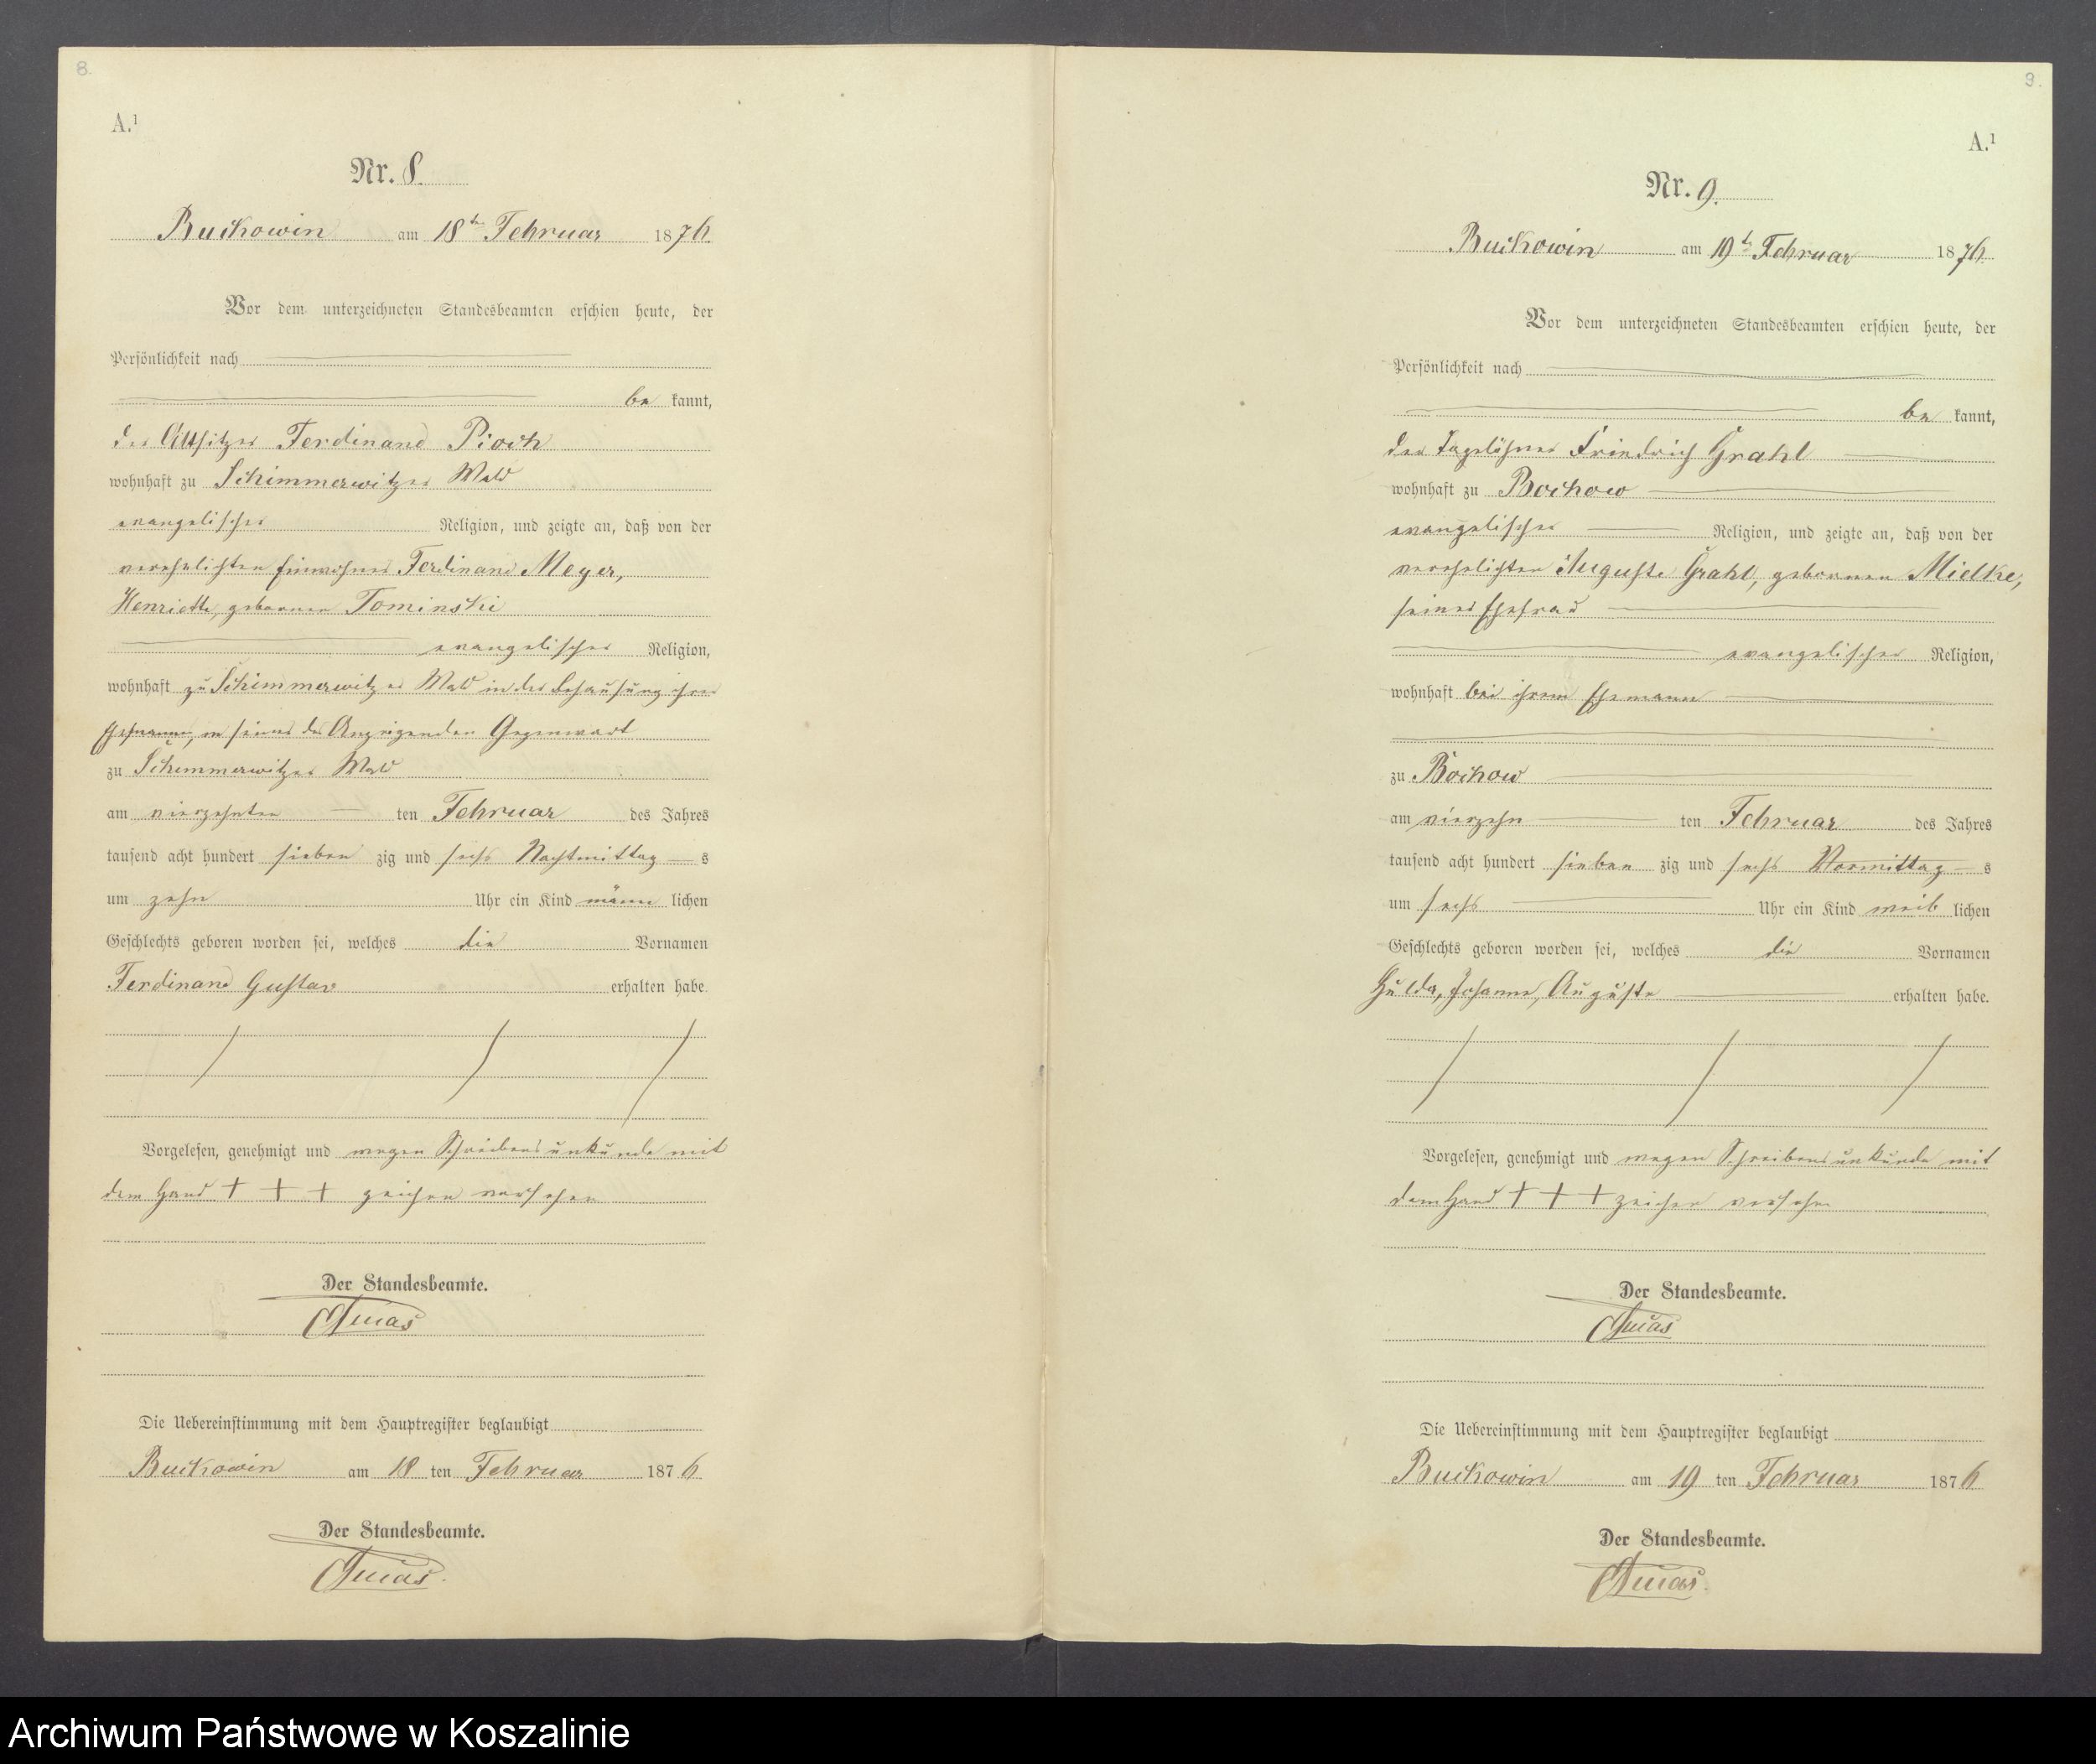 8.
A.¹
Nr. 8.
Buckowin am 18ten Februar 1876.
Vor dem unterzeichneten Standesbeamten erschien heute, der
Persönlichkeit nach
be kannt,
der Altsitzer Ferdinand Pioch
wohnhaft zu Schimmerwitzer Wald
evangelischer Religion, und zeigte an, daß von der
verehelichten Einwohner Ferdinand Meyer,
Henriette, geborenen Tominski
evangelischer Religion,
wohnhaft zu Schimmerwitzer Wald in der Behausung ihres
Ehemanns, in seiner des Anzeigenden Gegenwart
zu Schimmerwitzer Wald
am vierzehnten ten Februar des Jahres
tausend acht hundert sieben zig und sechs Nachmittag s
um zehn Uhr ein Kind männ lichen
Geschlechts geboren worden sei, welches die Vornamen
Ferdinand Gustav erhalten habe.
Vorgelesen, genehmigt und wegen Schreibensunkunde mit
dem Hand + + + zeichen versehen
Der Standesbeamte.
Die Uebereinstimmung mit dem Hauptregister beglaubigt
Buckowin am 18 ten Februar 1876
Der Standesbeamte.
9.
A.¹
Nr. 9.
Buckowin am 19t Februar 1876.
Vor dem unterzeichneten Standesbeamten erschien heute, der
Persönlichkeit nach
be kannt,
der Tagelöhner Friedrich Grahl
wohnhaft zu Bochow
evangelischer Religion, und zeigte an, daß von der
verehelichten Auguste Grahl, geborenen Mielke,
seiner Ehefrau
evangelischer Religion,
wohnhaft bei ihrem Ehemann
zu Bochow
am vierzehn ten Februar des Jahres
tausend acht hundert sieben zig und sechs Vormittag s
um sechs Uhr ein Kind weib lichen
Geschlechts geboren worden sei, welches die Vornamen
Hulda, Johanne, Auguste erhalten habe.
Vorgelesen, genehmigt und wegen Schreibensunkunde mit
dem Hand + + + zeichen versehn
Der Standesbeamte.
Die Uebereinstimmung mit dem Hauptregister beglaubigt
Buckowin am 19 ten Februar 1876
Der Standesbeamte.
Archiwum Państwowe w Koszalinie